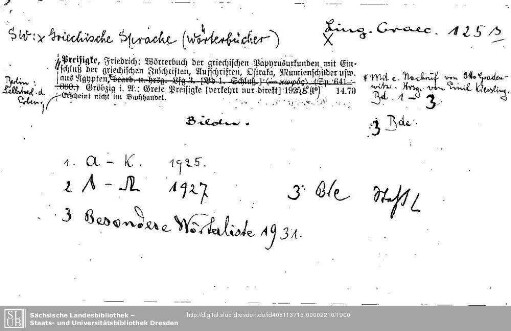 SW: x Griechische Sprache (Wörterbücher)
Ling. Graec. 125 s
x
Preisigke, Friedrich: Wörterbuch der griechischen Papyrusurkunden mit Ein-
schluß der griechischen Inschriften, Aufschriften, Ostraka, Mumienschilder usw.
aus Ägypten,
Grötzig i. A.: Grete Preisigke [verkehrt nur direkt] 1925 14.70
Erscheint nicht im Buchhandel.
Berlin:
Selbstverl. d.
Mit e. Nachruf von Otto Graden-
witz. Hrsg. von Emil Kiessling.
Bd. 1 - 3
3 Bde.
1. A - K. 1925.
2 Λ - Ω 1927
3 Bde
3 Besondere Wörterliste 1931.
SLUB
Sächsische Landesbibliothek –
Staats- und Universitätsbibliothek Dresden